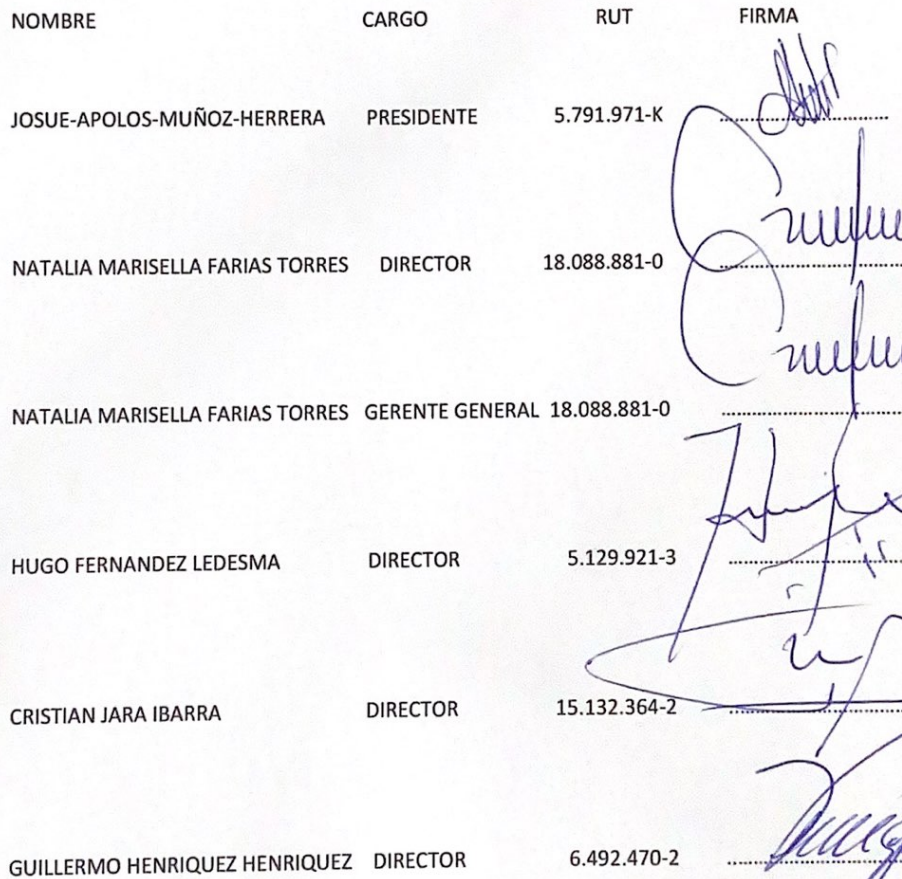 NOMBRE CARGO RUT FIRMA
JOSUE-APOLOS-MUÑOZ-HERRERA PRESIDENTE 5.791.971-K
NATALIA MARISELLA FARIAS TORRES DIRECTOR 18.088.881-0
NATALIA MARISELLA FARIAS TORRES GERENTE GENERAL 18.088.881-0
HUGO FERNANDEZ LEDESMA DIRECTOR 5.129.921-3
CRISTIAN JARA IBARRA DIRECTOR 15.132.364-2
GUILLERMO HENRIQUEZ HENRIQUEZ DIRECTOR 6.492.470-2